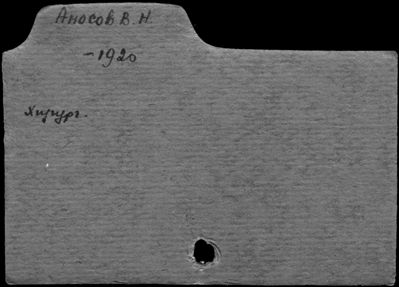 Аносов В. Н.
-1920
Хирург.